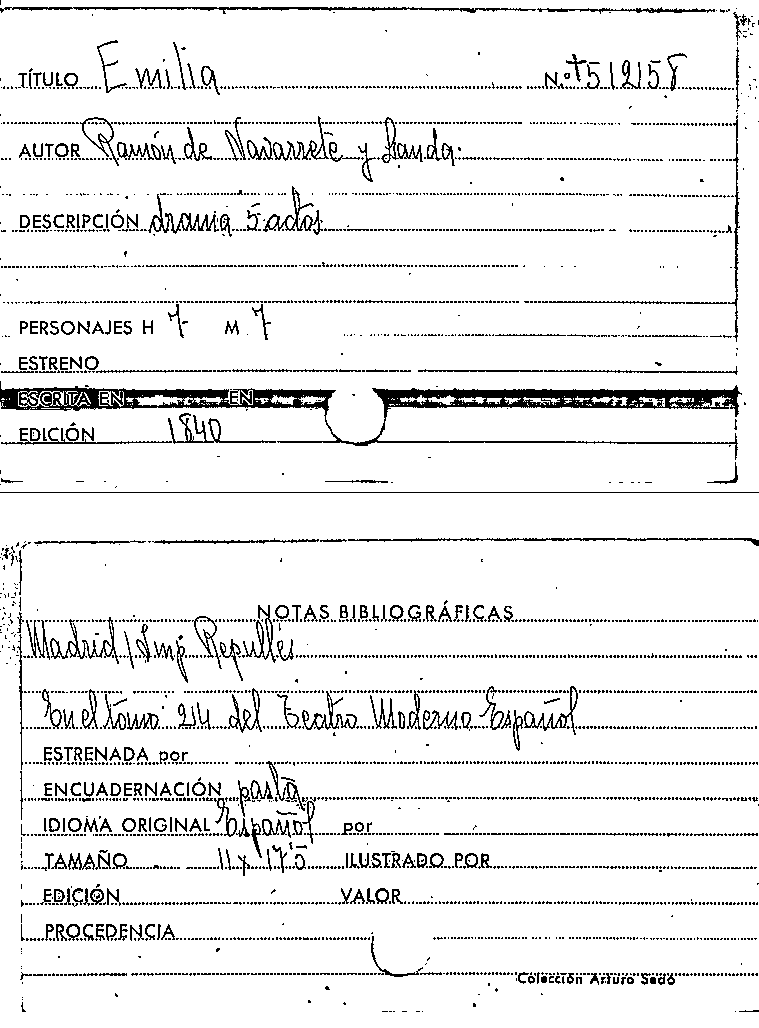 TÍTULO Emilia N.º +512158
AUTOR Ramón de Navarrete y Landa.
DESCRIPCIÓN drama 5 actos
PERSONAJES H 7 M 7
ESTRENO
ESCRITA EN EN
EDICIÓN 1840
NOTAS BIBLIOGRÁFICAS
Madrid / Imp Repullés
En el tomo 214 del Teatro Moderno Español
ESTRENADA por
ENCUADERNACIÓN pasta
IDIOMA ORIGINAL Español por
TAMAÑO 11 x 17'5 ILUSTRADO POR
EDICIÓN VALOR
PROCEDENCIA
Colección Arturo Sedó